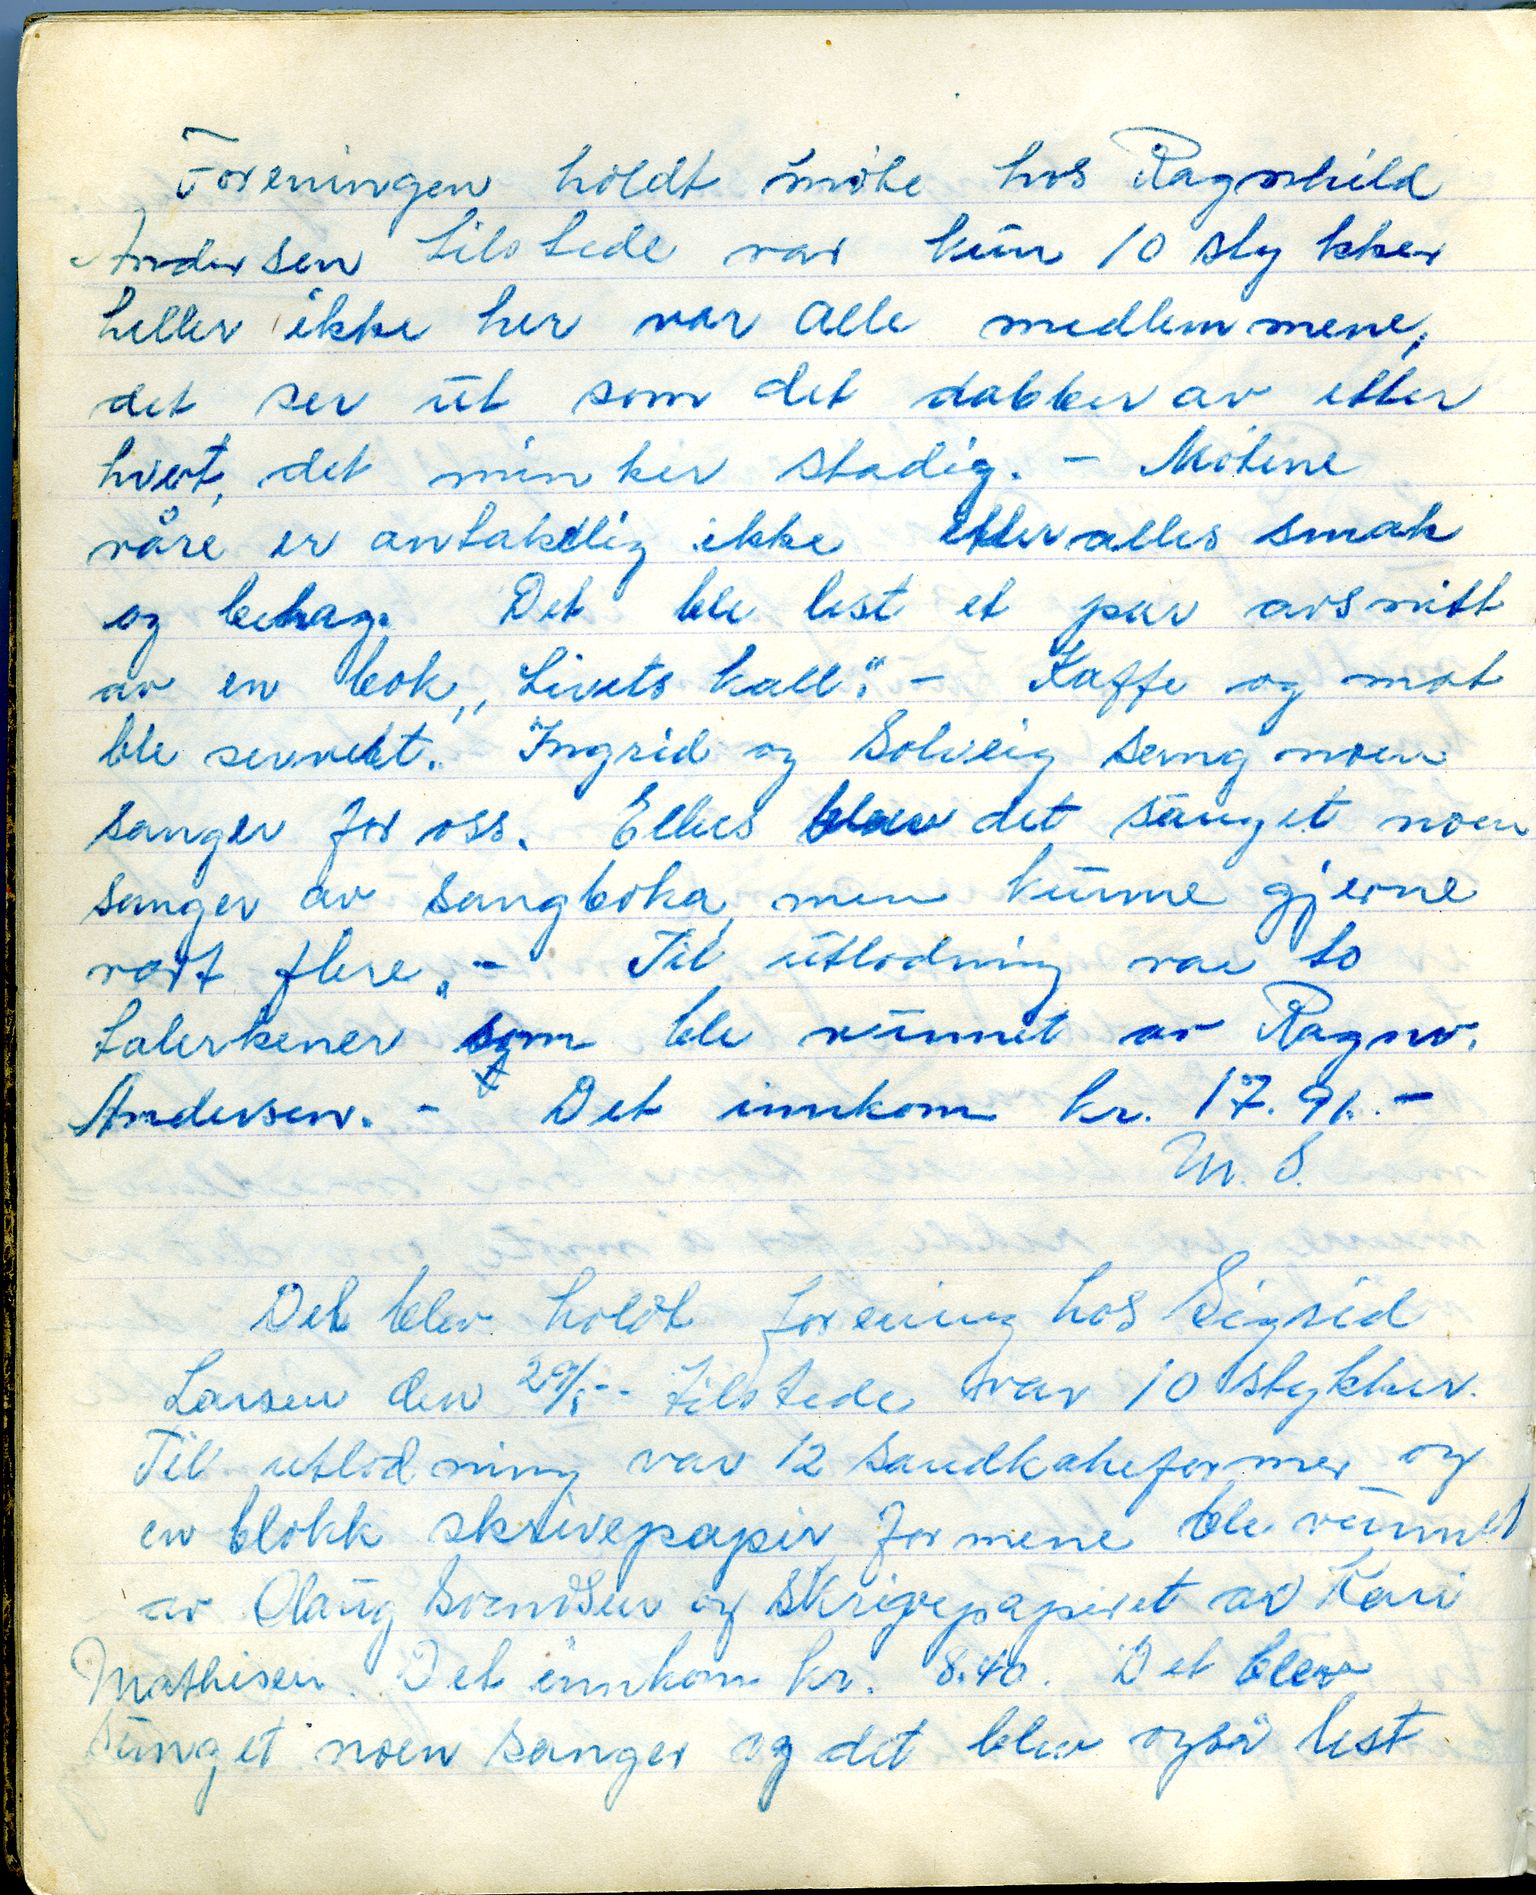 Foreningen holdt möte hos Ragnhild
Andersen tilstede var kun 10 stykker
heller ikke her var alle medlemmene,
det ser ut som det dabber av etter
hvert, det minker stadig. - Mötene
våre er antakelig ikke etter alles smak
og behag. Det ble lest et par avsnitt
av en bok „Livets kall". - Kaffe og mat
ble servert. Ingrid og Solveig sang noen
sanger for oss. Elles blev det sunget noen
sanger av sangboka, men kunne gjerne
vært flere. - Til utlodning var to
talerkener som ble vunnet av Ragnv.
Andersen. - Det innkom kr. 17.91. -
M. S.
Det blev holdt forening hos Sigrid
Larsen den tilstede var 10 stykker.
Til utlodning var 12 sandkakeformer og
en blokk skrivepapir, formene ble vunnet
av Olaug Svendsen og skrivepapiret av Kari
Mathisen. Det innkom kr. 8.40. Det blev
sunget noen sanger og det blev også lest